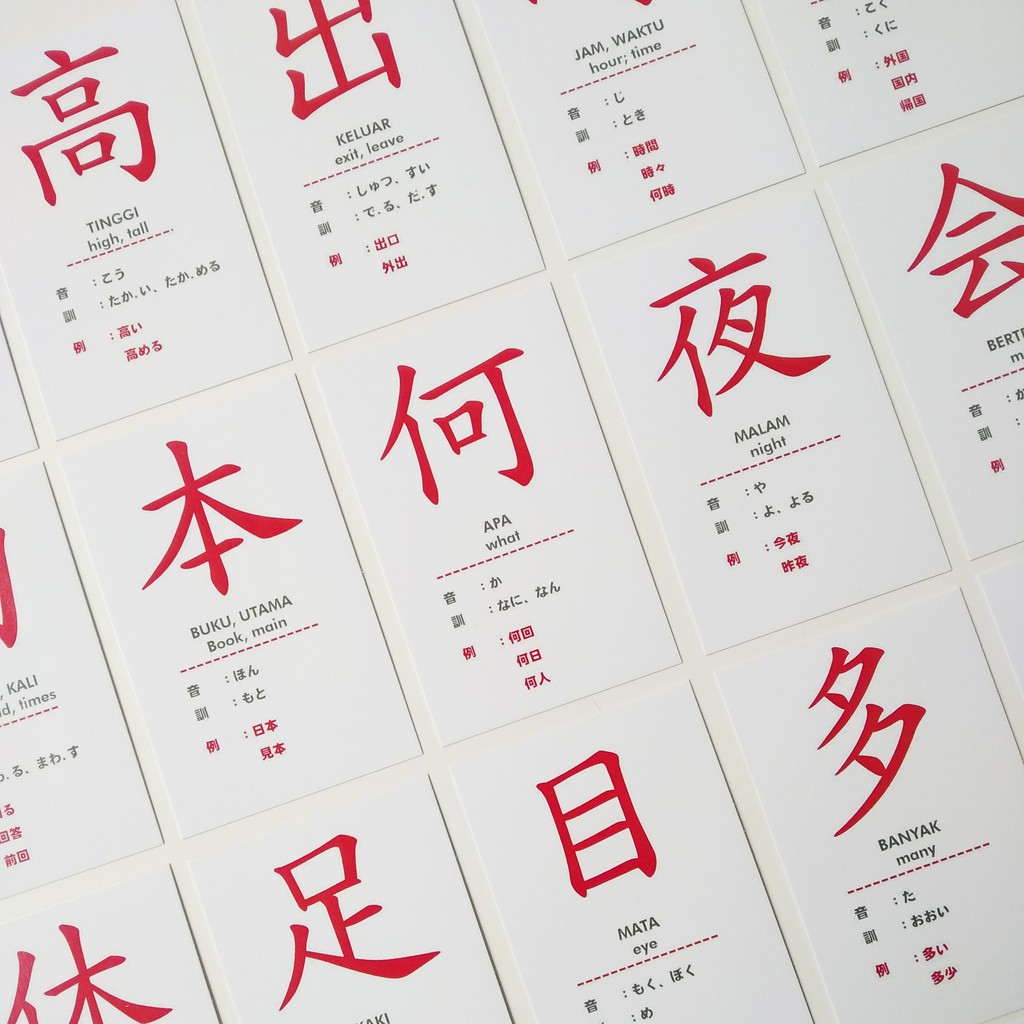 高
TINGGI
high, tall
音 : こう
訓 : たか.い、たか.める
例 : 高い
高める
出
KELUAR
exit, leave
音 : しゅつ、すい
訓 : で.る、だ.す
例 : 出口
外出
JAM, WAKTU
hour; time
音 : じ
訓 : とき
例 : 時間
時々
何時
音 : こく
訓 : くに
例 : 外国
国内
帰国
KALI
times
る、まわ.す
る
回答
前回
本
BUKU, UTAMA
Book, main
音 : ほん
訓 : もと
例 : 日本
見本
何
APA
what
音 : か
訓 : なに、なん
例 : 何回
何日
何人
夜
MALAM
night
音 : や
訓 : よ、よる
例 : 今夜
昨夜
会
音 :
訓 :
例
休
足
目
MATA
eye
音 : もく、ぼく
: め
多
BANYAK
many
音 : た
訓 : おおい
例 : 多い
多少